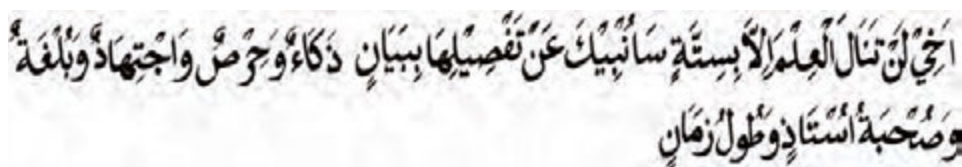 اَخِيْ لَنْ تَنَالَ الْعِلْمَ اِلَّا بِسِتَّةٍ سَأُنْبِيْكَ عَنْ تَفْصِيْلِهَا بِبَيَانٍ ذَكَاءٌ وَحِرْصٌ وَاجْتِهَادٌ وَبُلْغَةٌ
وَصُحْبَةُ اُسْتَاذٍ وَطُوْلُ زَمَانٍ